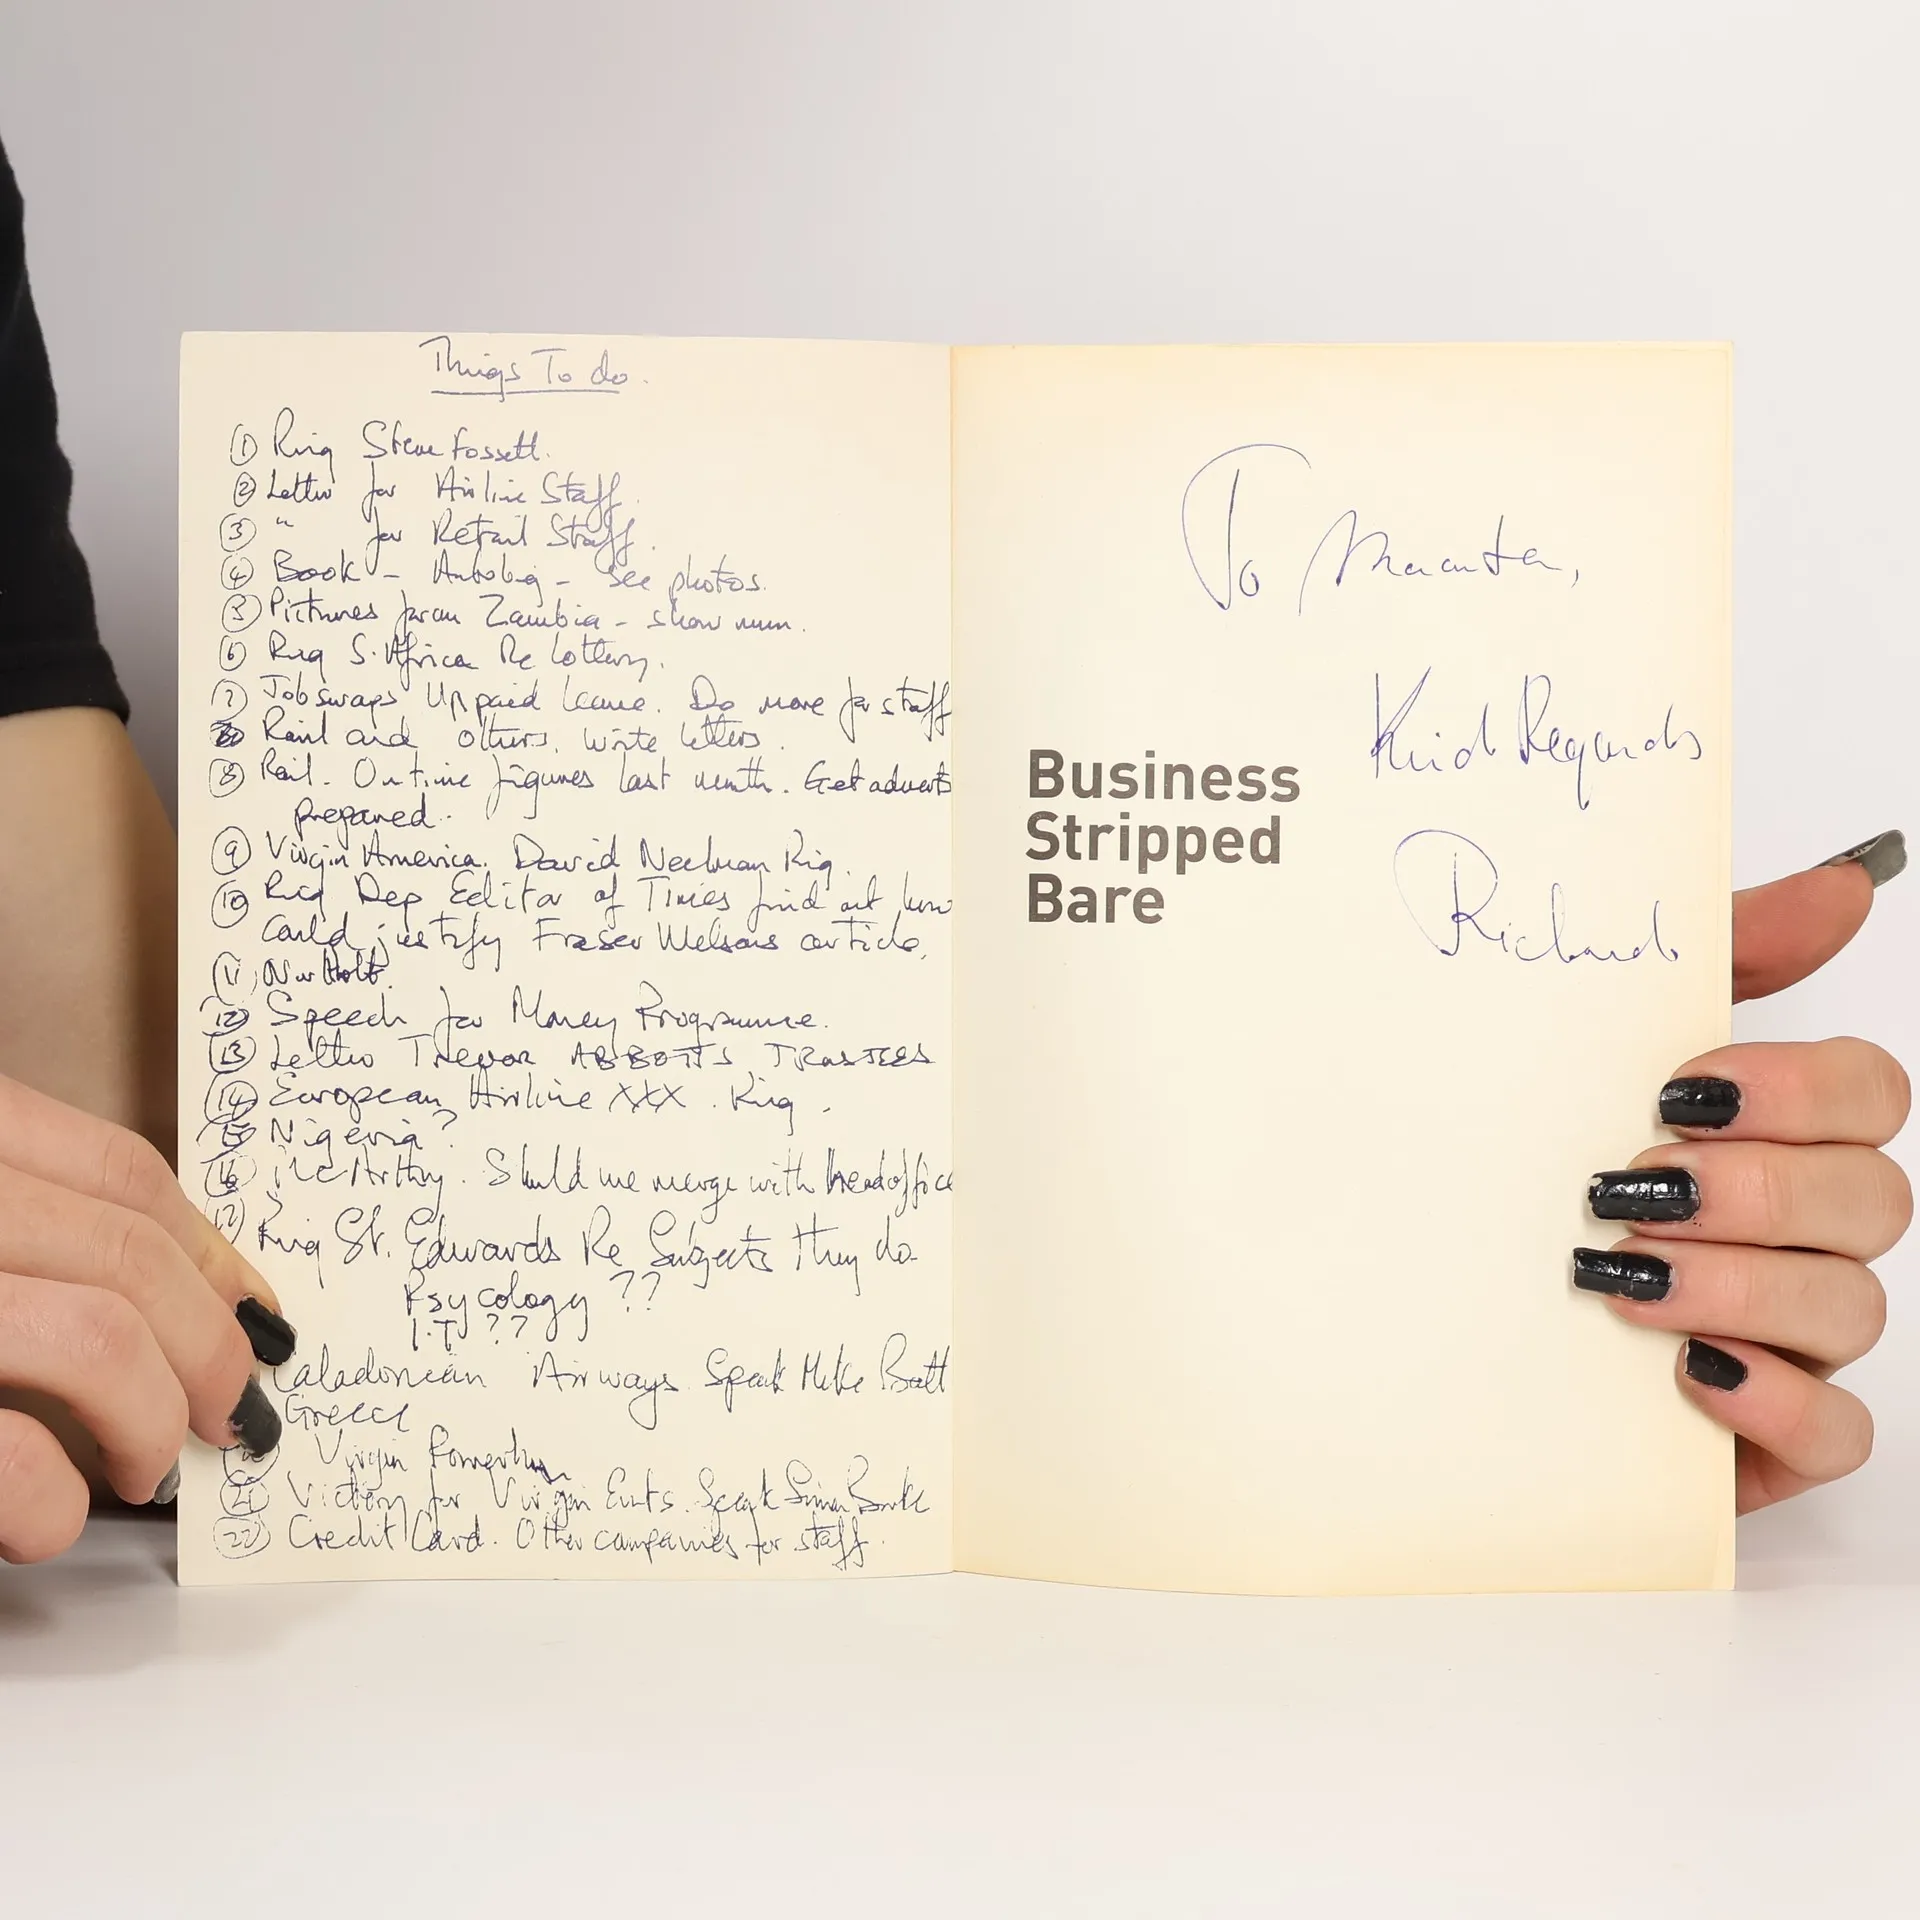 Things To do.
① Ring Steve Fossett.
② Letter for Airline Staff.
③ " for Retail Staff.
④ Book - Autobiog - see photos.
⑤ Pictures from Zambia - show mum.
⑥ Ring S. Africa Re Lottery.
⑦ Jobswaps Unpaid leave. Do more for staff
Rail and others. Write letters.
⑧ Rail. On time figures last month. Get adverts
prepared.
⑨ Virgin America. David Neeleman Ring.
⑩ Ring Dep Editor of Times find out how
Could justify Fraser Nelsons article.
⑪
⑫ Speech for Money Programme.
⑬ Letter Trevor ABBOTTS TRUSTEES
⑭ European Airline XXX. Ring.
⑮ Nigeria?
⑯ McArthy. Should we merge with Head office
⑰ Ring St. Edwards Re Subjects they do
Psycology ??
I.T ??
Caladonian Airways. Speak Mike Batt
Greece
Virgin
㉑ Victory for Virgin Speak Simon Burke
㉒ Credit Card. Other companies for staff.
To
Kind Regards
Richard
Business
Stripped
Bare